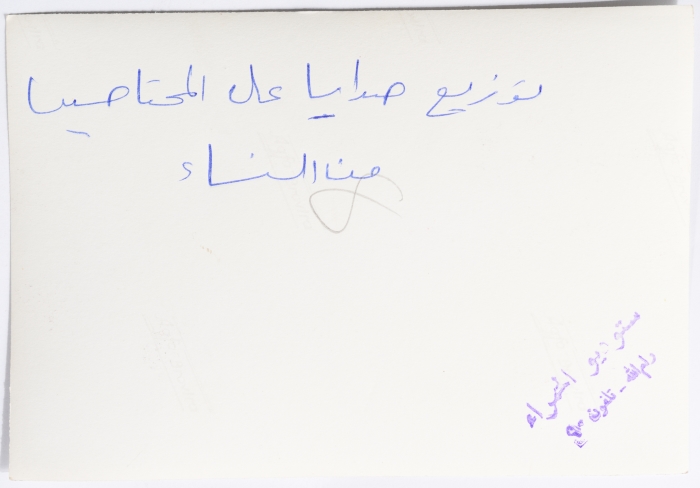 توزيع هدايا على المحتاجين
من النساء
ستوديو الحمراء
رام الله - تلفون